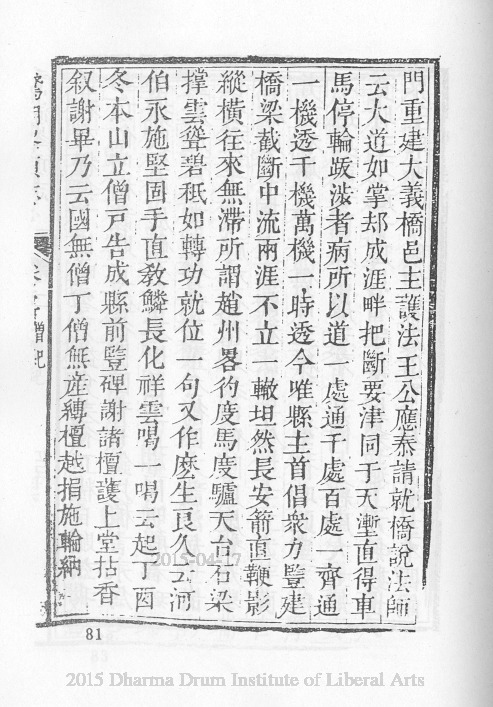 門重建大義橋邑主護法王公應泰請就橋說法師
云大道如掌却成涯畔把斷要津同于天塹直得車
馬停輪跋涉者病所以道一處通千處百處一齊通
一機透千機萬機一時透今唯縣主首倡衆力豎建
橋梁截斷中流兩涯不立一轍坦然長安箭直鞭影
縱橫往來無滯所謂趙州畧彴度馬度驢天台石梁
撑雲聳碧祗如轉功就位一句又作麼生良久云河
伯永施堅固手直教鱗長化祥雲喝一喝云起丁酉
冬本山立僧戶告成縣前豎碑謝諸檀護上堂拈香
叙謝畢乃云國無僧丁僧無産縳檀越捐施輪納
81
2015-04-17
2015 Dharma Drum Institute of Liberal Arts